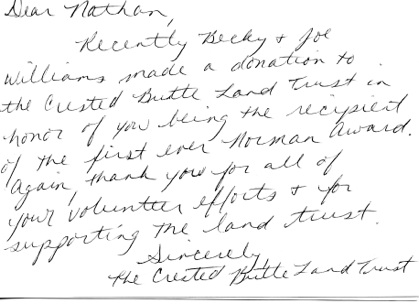 Dear Nathan,
Recently Becky & Joe
Williams made a donation to
the Crested Butte Land Trust in
honor of you being the recipient
of the first ever Norman Award.
Again, thank you for all of
your volunteer efforts & for
supporting the land trust.
Sincerely,
the Crested Butte Land Trust